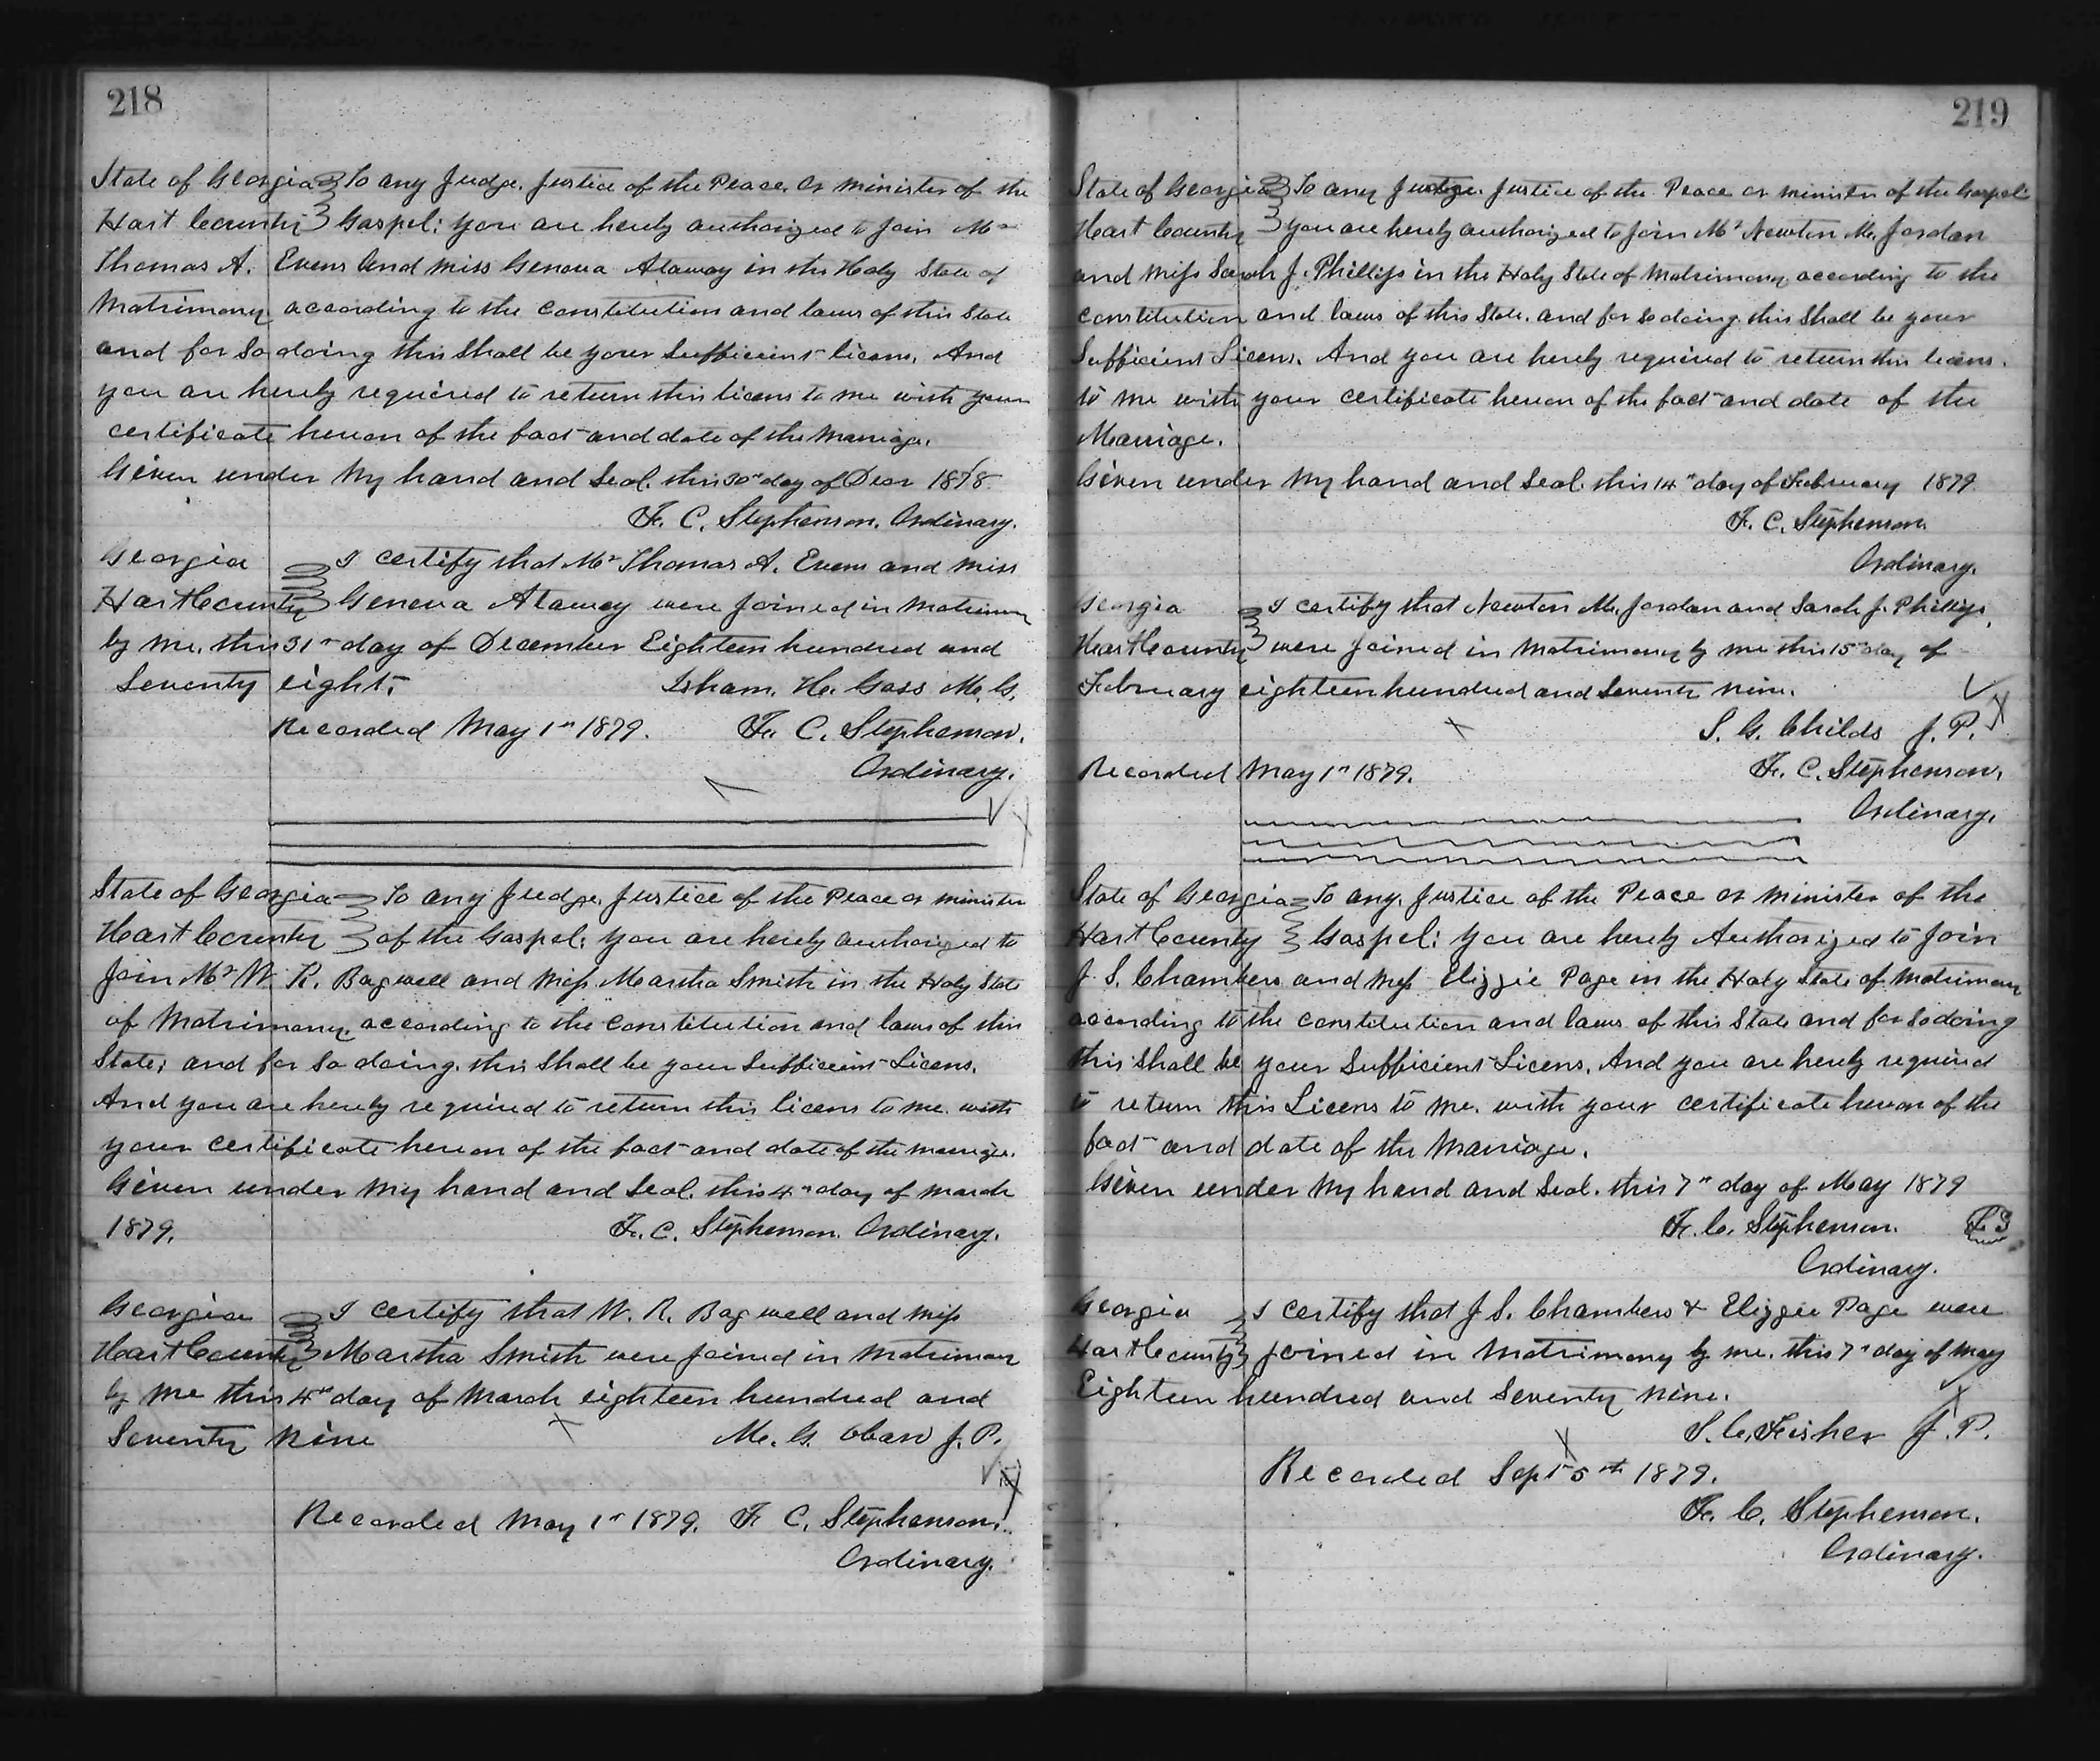 218
State of Georgia To any Judge, Justice of the Peace, or minister of the
Hart County Gospel: you are hereby authorized to Join Mr
Thomas A. Evens and miss Genova Alaway in the Holy State of
Matrimony according to the Constitution and laws of this State
and for so doing this shall be your sufficient licens, And
you are hereby required to return this licens to me with your
certificate hereon of the fact and date of the marriage.
Given under my hand and Seal. this 30th day of Decr 1878
F. C. Stephenson. Ordinary.
Georgia I certify that Mr Thomas A. Evens and miss
Hart County Genova Alaway were joined in Matrimony
by me, this 31st day of December Eighteen hundred and
Seventy eight. Isham. H. Goss M. G.
Recorded May 1st 1879. F. C. Stephenson.
Ordinary.
State of Georgia To any Judge, Justice of the Peace or minister
Hart County of the Gospel: you are hereby authorized to
Join Mr W. R. Bagwell and Miss Martha Smith in the Holy State
of Matrimony, according to the Constitution and laws of this
State; and for so doing, this shall be your sufficient Licens.
And you are hereby required to return this licens to me. with
your certificate hereon of the fact and date of the marriage.
Given under my hand and Seal. this 4th day of March
1879. F. C. Stephenson. Ordinary.
Georgia I certify that W. R. Bagwell and Miss
Hart County Martha Smith were joined in Matrimony
by me this 4th day of March eighteen hundred and
Seventy nine M. G. J. P.
Recorded May 1st 1879. F. C. Stephenson.
Ordinary.
219
State of Georgia To any Judge. Justice of the Peace or minister of the Gospel
Hart County you are hereby authorized to Join Mr Newton M. Jordan
and Miss Sarah J. Phillips in the Holy State of Matrimony according to the
constitution and laws of this State. and for so doing this shall be your
sufficient Licens. And you are hereby required to return this licens.
to me with your certificate hereon of the fact and date of the
Marriage.
Given under my hand and Seal. this 14th day of February 1879
F. C. Stephenson.
Ordinary.
Georgia I certify that Newton M. Jordan and Sarah J. Phillips,
Hart County were joined in Matrimony by me this 15th day of
February eighteen hundred and Seventy nine.
S. G. Childs J. P.
Recorded May 1st 1879. F. C. Stephenson,
Ordinary.
State of Georgia To any, Justice of the Peace or minister of the
Hart County Gospel: you are hereby Authorized to Join
J. S. Chambers and Miss Elizzie Page in the Holy State of Matrimony
according to the constitution and laws of this State and for so doing
this shall be your Sufficient Licens, And you are hereby required
to return this Licens to me. with your certificate hereon of the
fact and date of the Marriage.
Given under my hand and Seal. this 7th day of May 1879
F. C. Stephenson. L S
Ordinary.
Georgia I certify that J. S. Chambers & Elizzie Page were
Hart County joined in Matrimony by me. this 7th day of May
Eighteen hundred and Seventy nine.
S. C. Fisher J. P.
Recorded Sept 5th 1879.
F. C. Stephenson.
Ordinary.